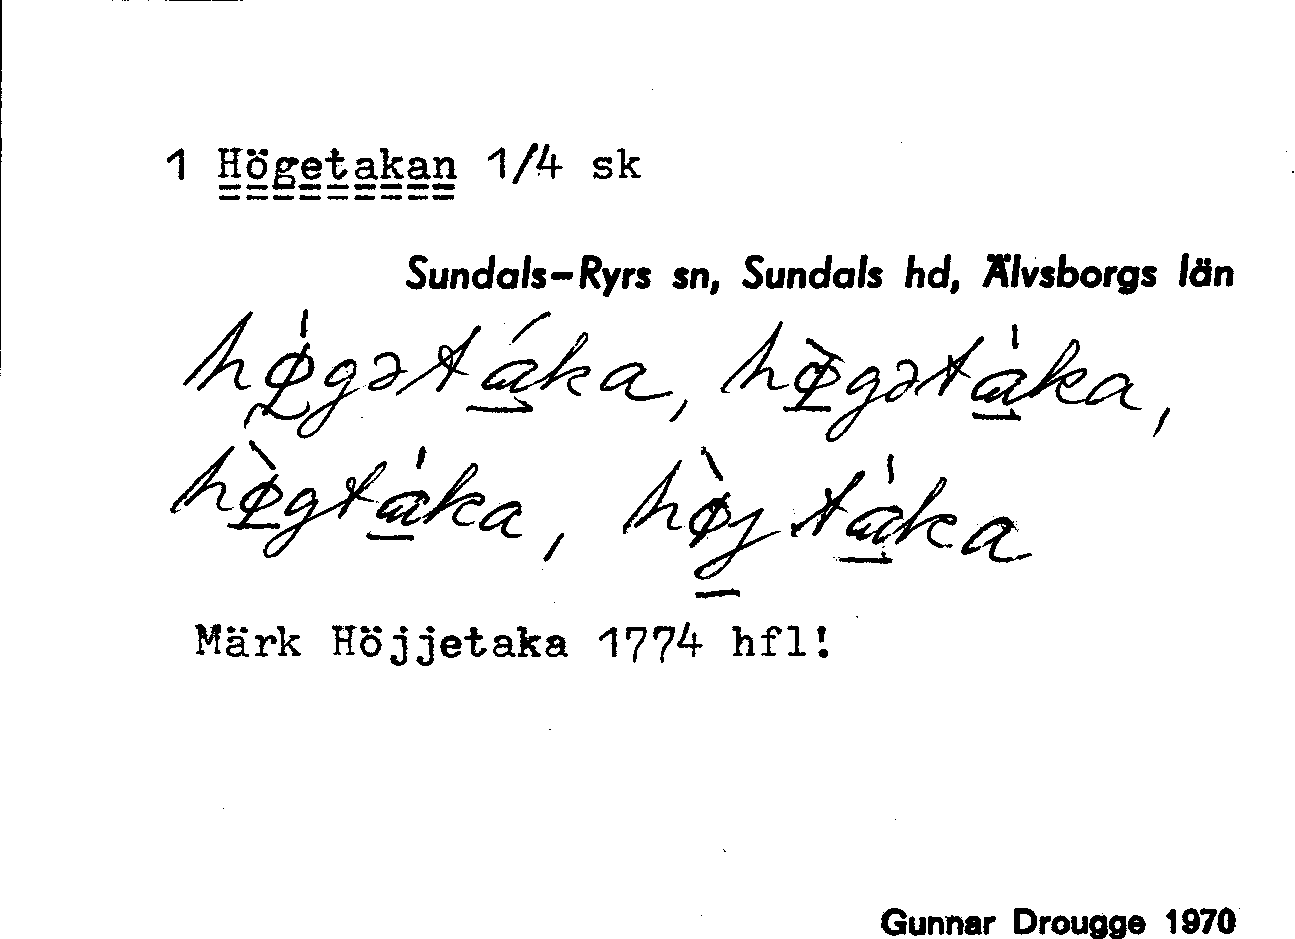 1 Högetakan 1/4 sk
Sundals-Ryrs sn, Sundals hd, Älvsborgs län
hø̀gətáka, hø̀gətàka,
hø̀gtàka, hø̀jtàka
Märk Höjjetaka 1774 hfl!
Gunnar Drougge 1970